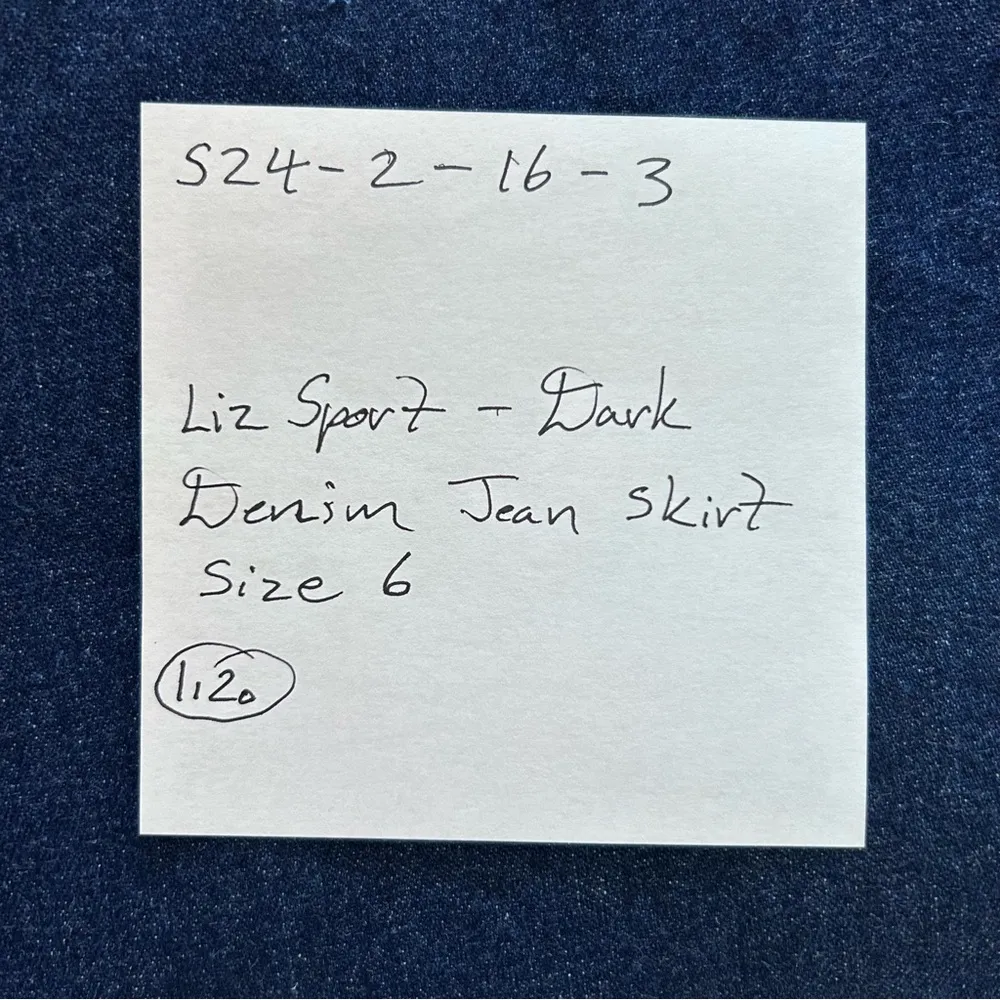 S24-2-16-3
Liz Sport - Dark
Denim Jean Skirt
Size 6